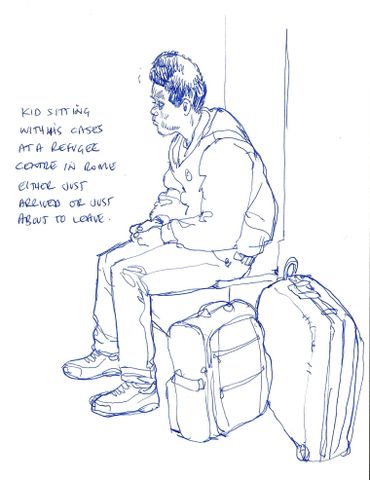 KID SITTING
WITH HIS CASES
AT A REFUGEE
CENTRE IN ROME
EITHER JUST
ARRIVED OR JUST
ABOUT TO LEAVE.